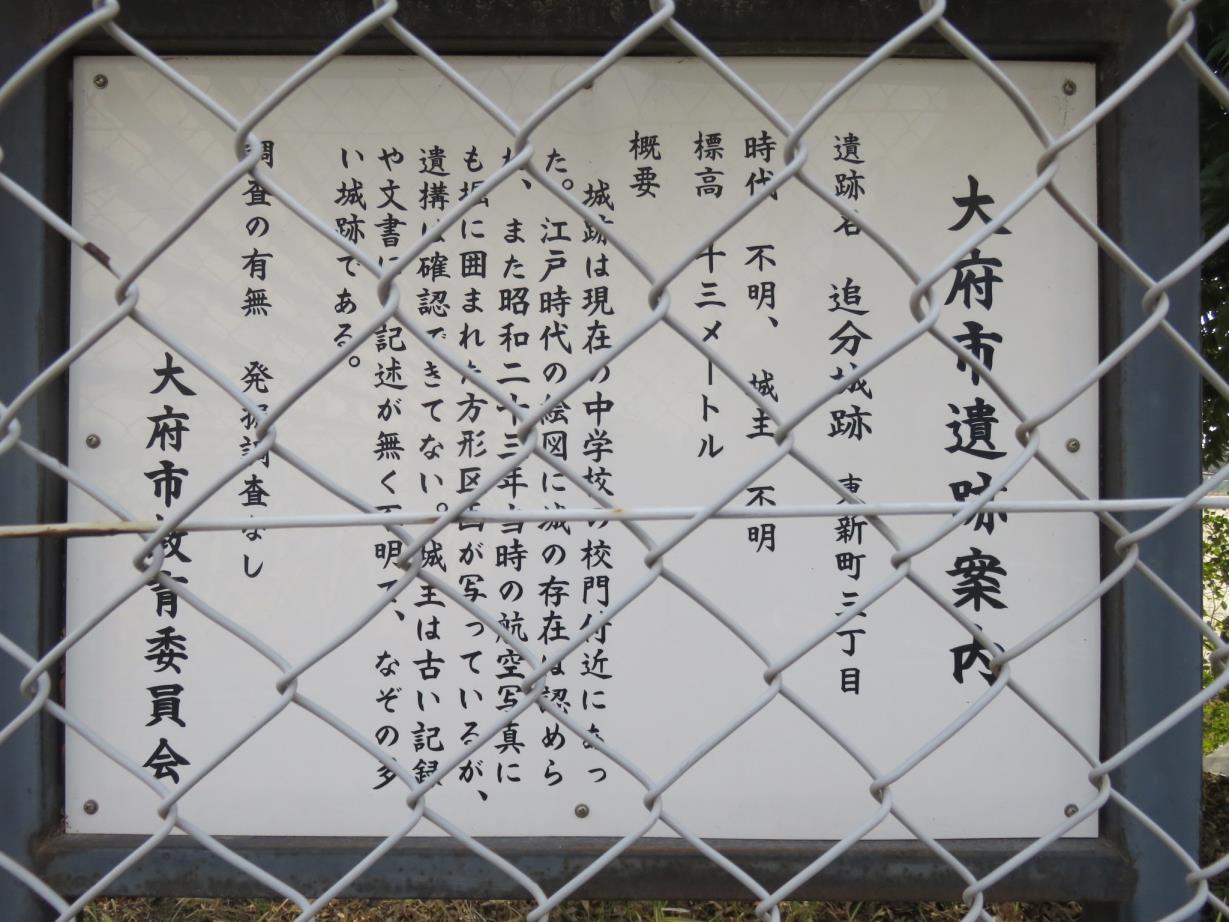 大府市遺跡案内
遺跡名 追分城跡 東新町三丁目
時代 不明、城主 不明
標高 十三メートル
概要
城跡は現在の中学校の校門付近にあっ
た。江戸時代の絵図に城の存在は認めら
れ、また昭和二十三年当時の航空写真に
も堀に囲まれた方形区画が写っているが、
遺構は確認できてない。城主は古い記録
や文書に記述が無く不明で、なぞの多
い城跡である。
調査の有無 発掘調査なし
大府市教育委員会